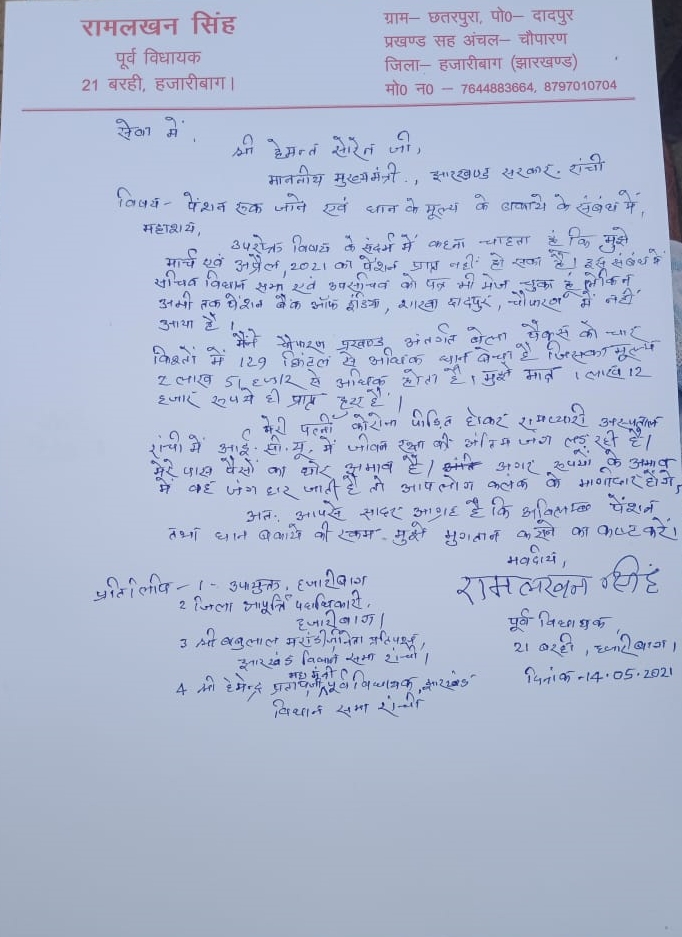 रामलखन सिंह
पूर्व विधायक
21 बरही, हजारीबाग।
ग्राम– छतरपुरा, पो0– दादपुर
प्रखण्ड सह अंचल– चौपारण
जिला– हजारीबाग (झारखण्ड)
मो0 न0 – 7644883664, 8797010704
सेवा में,
श्री हेमन्त सोरेन जी,
माननीय मुख्यमंत्री, झारखण्ड सरकार, रांची
विषय- पेंशन रूक जाने एवं धान के मूल्य के बकाये के संबंध में,
महाशय,
उपरोक्त विषय के संदर्भ में कहना चाहता हूं कि मुझे
मार्च एवं अप्रैल, 2021 का पेंशन प्राप्त नहीं हो सका है। इस संबंध में
सचिव विधान सभा एवं उपसचिव को पत्र भी भेज चुका हूं लेकिन
अभी तक पेंशन बैंक ऑफ इंडिया, शाखा दादपुर, चौपारण में नहीं
आया है।
मैंने चौपारण प्रखण्ड अंतर्गत बेला पैक्स को चार
किश्तों में 129 क्विंटल से अधिक धान बेचा है जिसका मूल्य
2 लाख 51 हजार से अधिक होता है। मुझे मात्र 1 लाख 12
हजार रूपये ही प्राप्त हुए हैं।
मेरी पत्नी कोरोना पीड़ित होकर रामप्यारी अस्पताल
रांची में आई. सी. यू. में जीवन रक्षा की अंतिम जंग लड़ रही है।
मेरे पास पैसों का घोर अभाव है। अगर रूपयों के अभाव
में वह जंग हार जाती है तो आपलोग कलंक के भागीदार होंगे,
अत: आपसे सादर आग्रह है कि अविलम्ब पेंशन
तथा धान बकाये की रकम मुझे भुगतान करने का कष्ट करें।
भवदीय,
रामलखन सिंह
पूर्व विधायक
21 बरही, हजारीबाग।
दिनांक-14.05.2021
प्रतिलिपि - 1 - उपायुक्त, हजारीबाग
2 जिला आपूर्ति पदाधिकारी,
हजारीबाग।
3 श्री बाबुलाल मरांडी, नेता प्रतिपक्ष,
झारखंड विधान सभा रांची।
4 श्री हेमेन्द्र प्रताप जी महामंत्री पूर्व विधायक, झारखंड
विधान सभा रांची